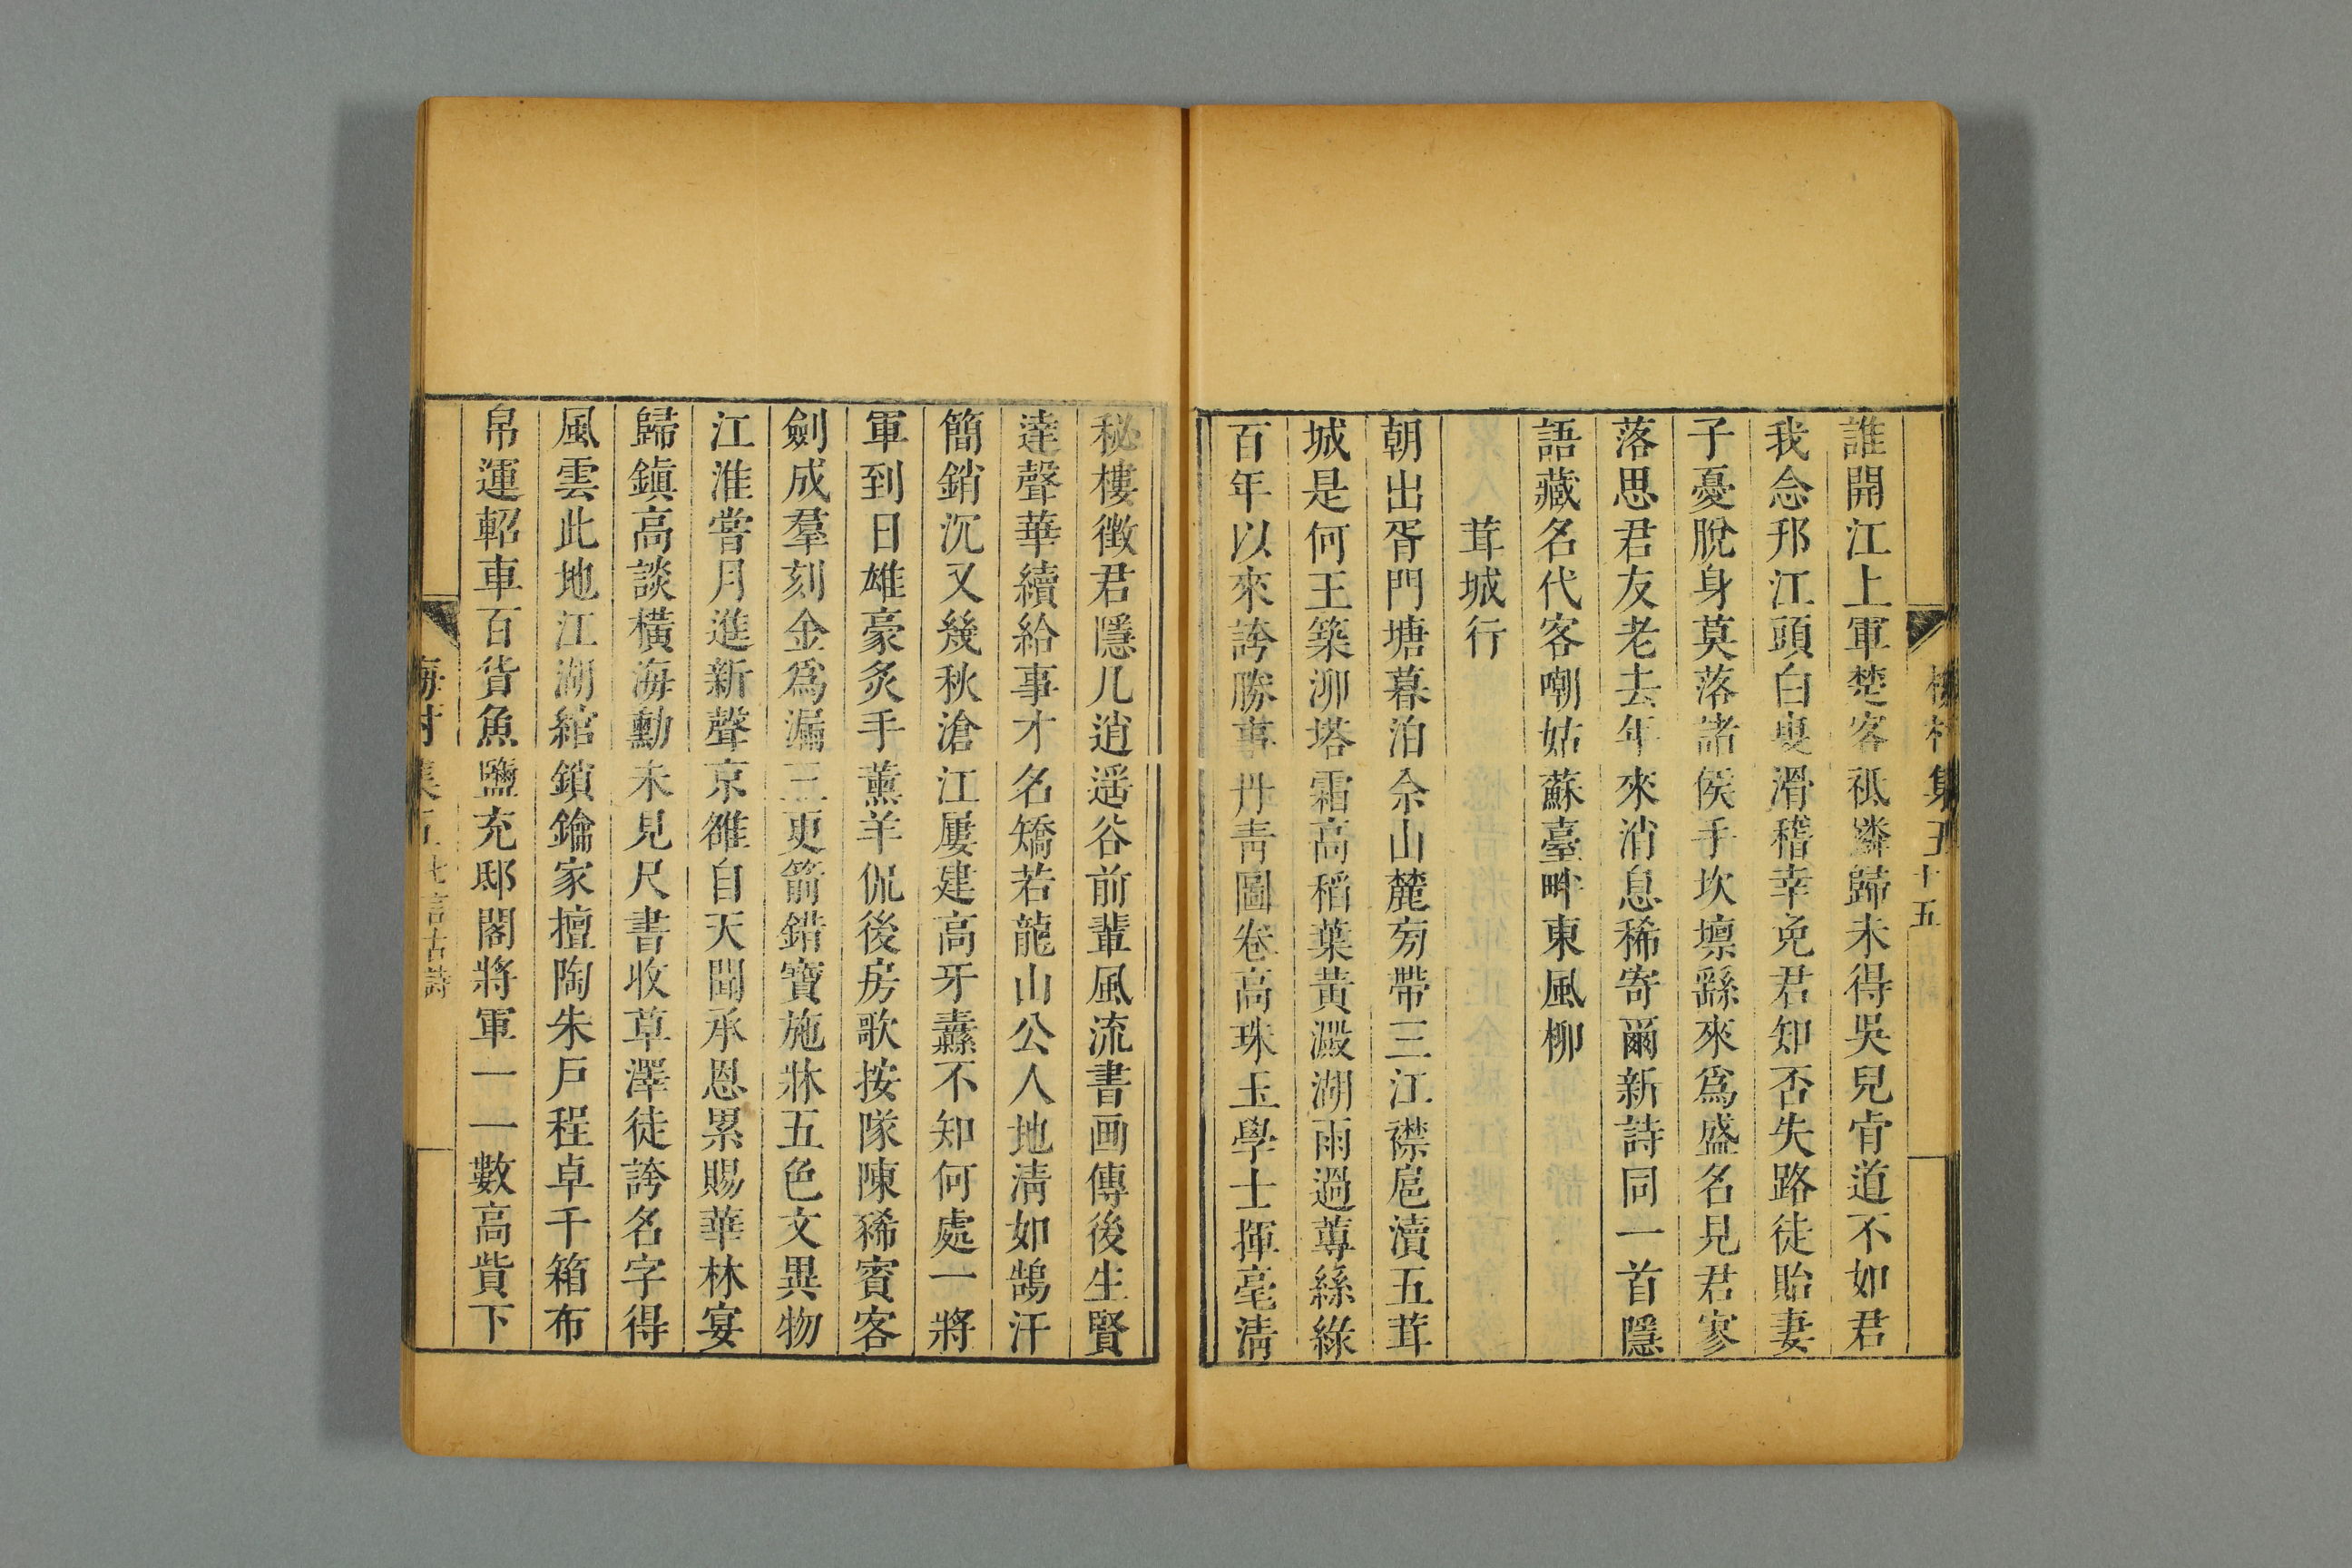 梅村集五 十五
誰開江上軍楚客祗憐歸未得吳兒肯道不如君
我念邗江頭白叟滑稽幸免君知否失路徒貽妻
子憂脫身莫落諸侯手坎壈繇來爲盛名見君寥
落思君友老去年來消息稀寄爾新詩同一首隱
語藏名代客嘲姑蘇臺畔東風柳
茸城行
朝出胥門塘暮泊佘山麓㫄帶三江襟扈瀆五茸
城是何王築泖塔霜高稻葉黃澱湖雨過蓴絲綠
百年以來誇勝事丹青圖卷高珠玉學士揮毫清
秘樓徵君隱几逍遥谷前輩風流書画傳後生賢
達聲華續給事才名矯若龍山公人地清如鵠汗
簡銷沉又幾秋滄江屢建高牙纛不知何處一將
軍到日雄豪炙手薰羊侃後房歌按隊陳稀賓客
劍成羣刻金爲漏三更箭錯寶施牀五色文異物
江淮嘗月進新聲京雒自天聞承恩累賜華林宴
歸鎮高談橫海勳未見尺書收草澤徒誇名字得
風雲此地江湖綰鎖鑰家擅陶朱戶程卓千箱布
帛運軺車百貨魚鹽充邸閣將軍一一數高貲下
梅村集五 七言古詩